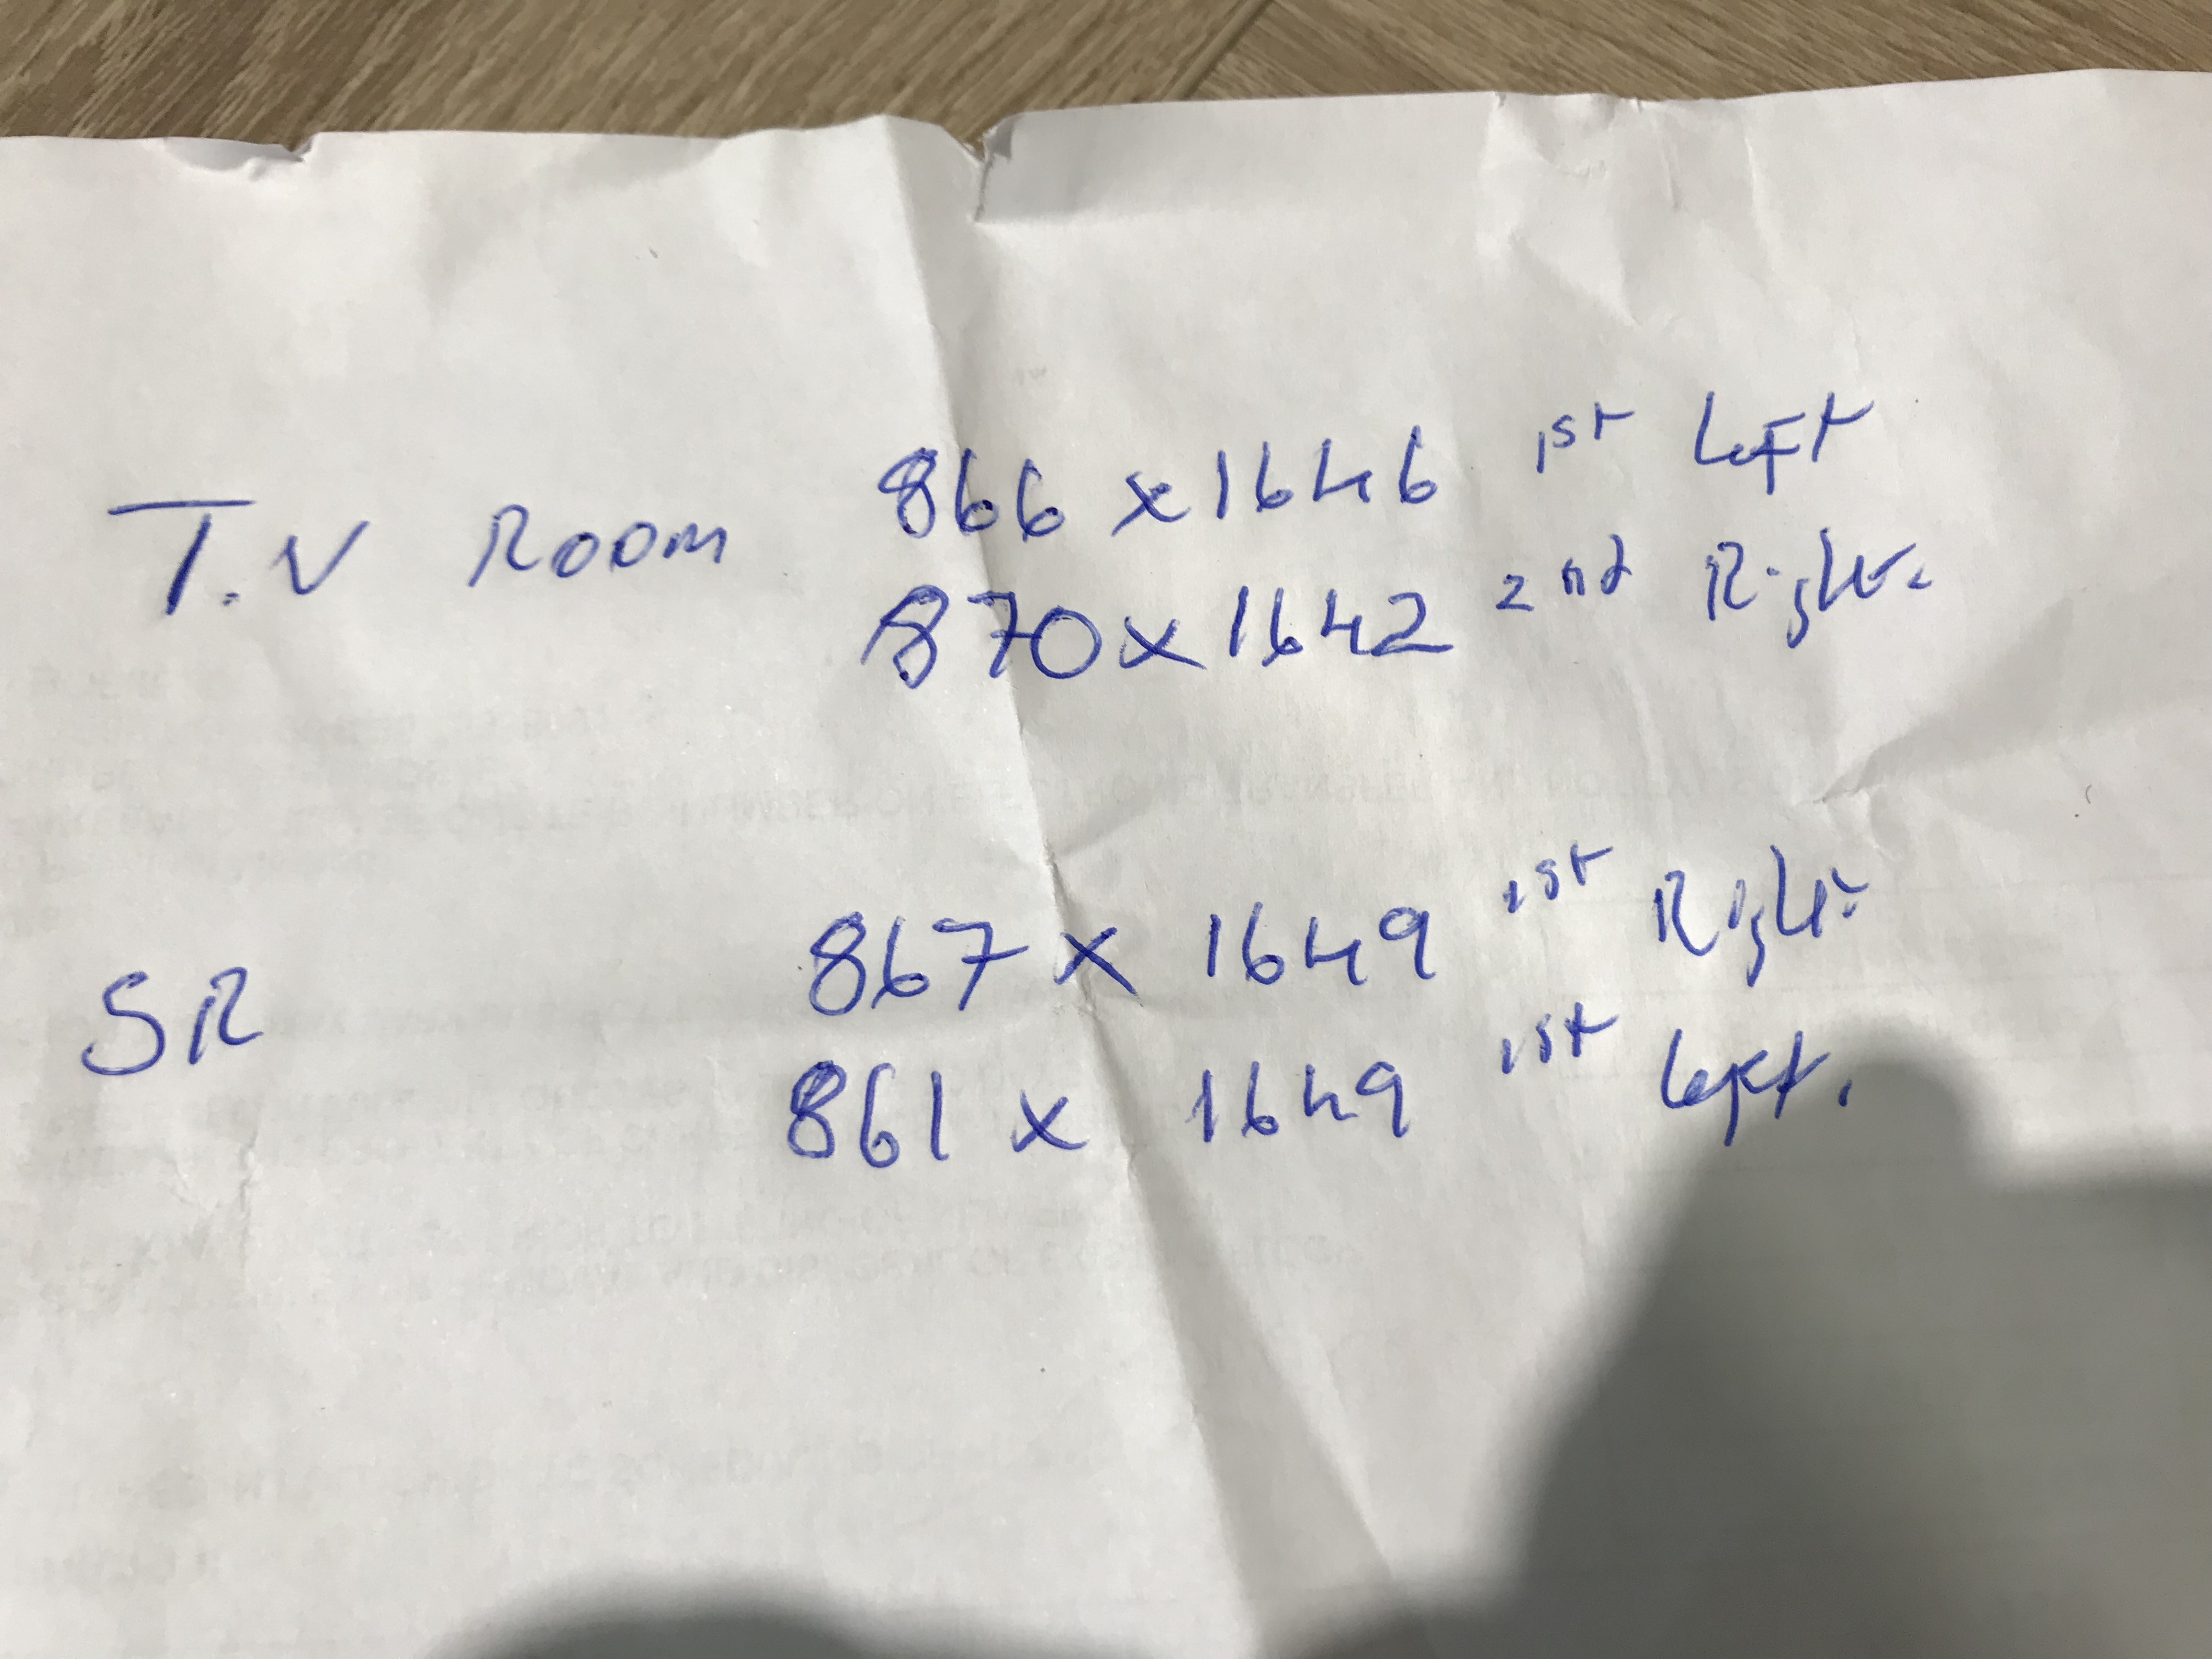 T.V ROOM 866 x 1646 1st Left
870 x 1642 2nd Right.
SR 867 x 1649 1st Right
861 x 1649 1st Left.